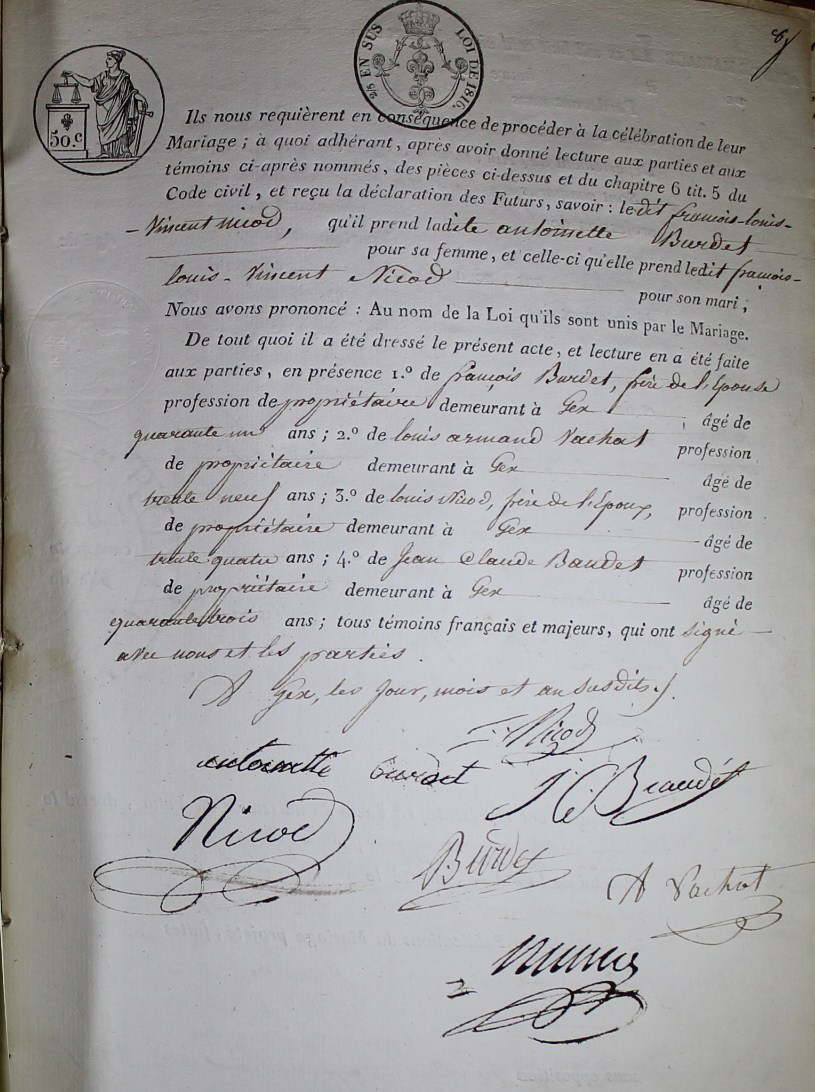 2/5 EN SUS LOI DE 1816.
50.c
Ils nous requièrent en conséquence de procéder à la célébration de leur
Mariage ; à quoi adhérant, après avoir donné lecture aux parties et aux
témoins ci-après nommés, des pièces ci-dessus et du chapitre 6 tit. 5 du
Code civil, et reçu la déclaration des Futurs, savoir : ledit françois-louis-
-Vincent Nicod, qu'il prend ladite antoinette Burdet
pour sa femme, et celle-ci qu'elle prend ledit françois-
louis-Vincent Nicod pour son mari ;
Nous avons prononcé : Au nom de la Loi qu'ils sont unis par le Mariage.
De tout quoi il a été dressé le présent acte, et lecture en a été faite
aux parties, en présence 1.º de françois Burdet, frère de l'Epouse
profession de propriétaire demeurant à Gex ; âgé de
quarante un ans ; 2.º de louis armand Vachat profession
de propriétaire demeurant à Gex âgé de
trente neuf ans ; 3.º de louis Nicod, frère de l'Epoux, profession
de propriétaire demeurant à Gex âgé de
trente quatre ans ; 4.º de Jean Claude Baudet profession
de propriétaire demeurant à Gex âgé de
quarante trois ans ; tous témoins français et majeurs, qui ont signé
avec nous et les parties.
A Gex, les jour, mois et an susdits.
Nicod
antoinette burdet J C Beaudet
Nicod
Burdet
A Vachat